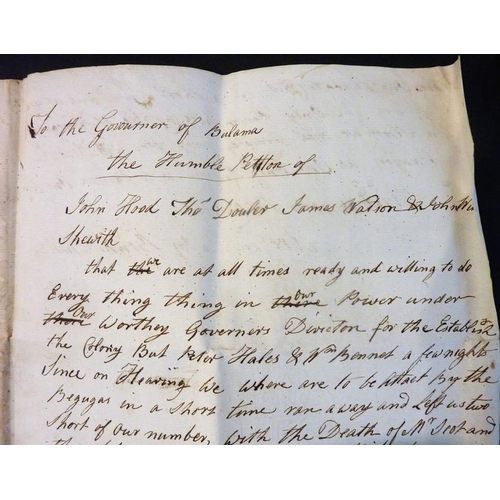 To the Govourner of Bulama
the Humble Pettion of
John Hood Tho.s Douler James Watson & John
Shewith
that the we are at all times ready and willing to do
Every thing thing in there our Power under
there Our Worthey Governers Diriction for the Establis
the Colony But Peter Hales & Wm Bennet a few nights
Since on Hearing We where are to be Attact Bay the
Begugas in a Short time ran away and Left us two
Short of our number, with the Death of Mr Scot and